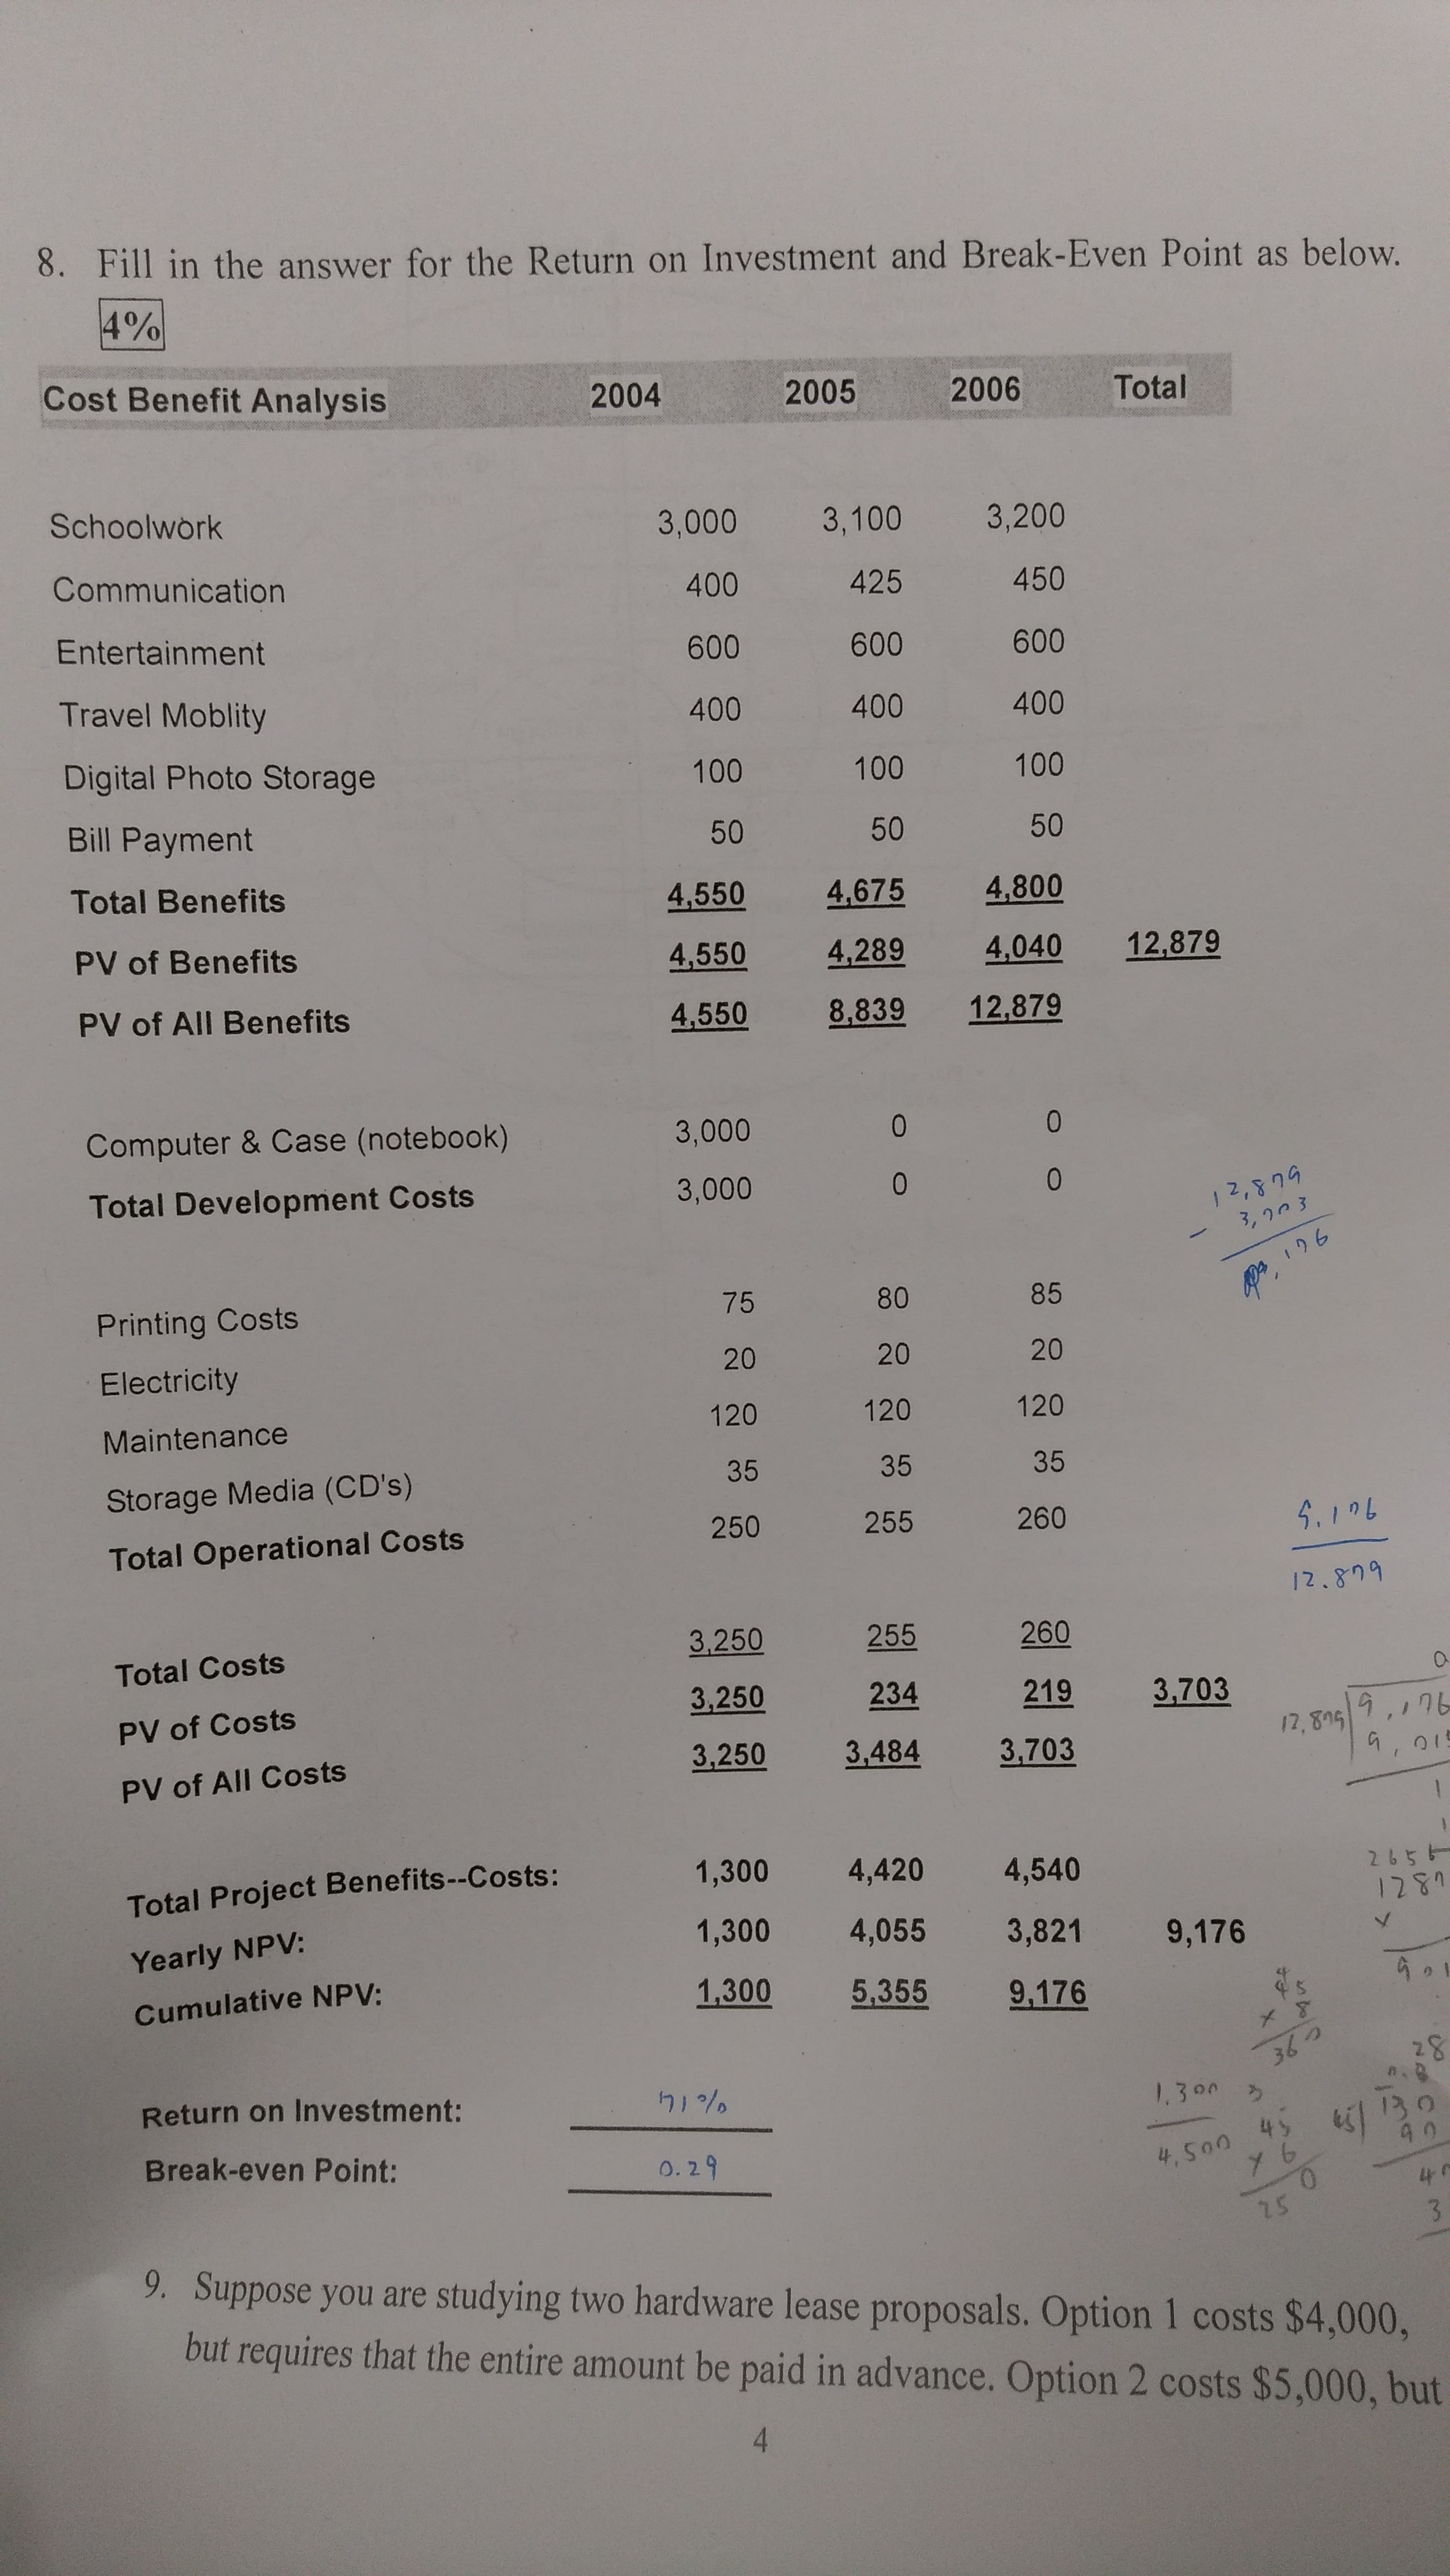 8. Fill in the answer for the Return on Investment and Break-Even Point as below.
4%
Cost Benefit Analysis 2004 2005 2006 Total
Schoolwork 3,000 3,100 3,200
Communication 400 425 450
Entertainment 600 600 600
Travel Moblity 400 400 400
Digital Photo Storage 100 100 100
Bill Payment 50 50 50
Total Benefits 4,550 4,675 4,800
PV of Benefits 4,550 4,289 4,040 12,879
PV of All Benefits 4,550 8,839 12,879
Computer & Case (notebook) 3,000 0 0
Total Development Costs 3,000 0 0
12,879
- 3,703
9,176
Printing Costs 75 80 85
Electricity 20 20 20
Maintenance 120 120 120
Storage Media (CD's) 35 35 35
Total Operational Costs 250 255 260
9,176
12.879
Total Costs 3,250 255 260
PV of Costs 3,250 234 219 3,703
PV of All Costs 3,250 3,484 3,703
12,879 9,176
Total Project Benefits--Costs: 1,300 4,420 4,540
Yearly NPV: 1,300 4,055 3,821 9,176
Cumulative NPV: 1,300 5,355 9,176
45
x 8
360
1,300
4,500
Return on Investment: 71%
Break-even Point: 0.29
9. Suppose you are studying two hardware lease proposals. Option 1 costs $4,000,
but requires that the entire amount be paid in advance. Option 2 costs $5,000, but
4